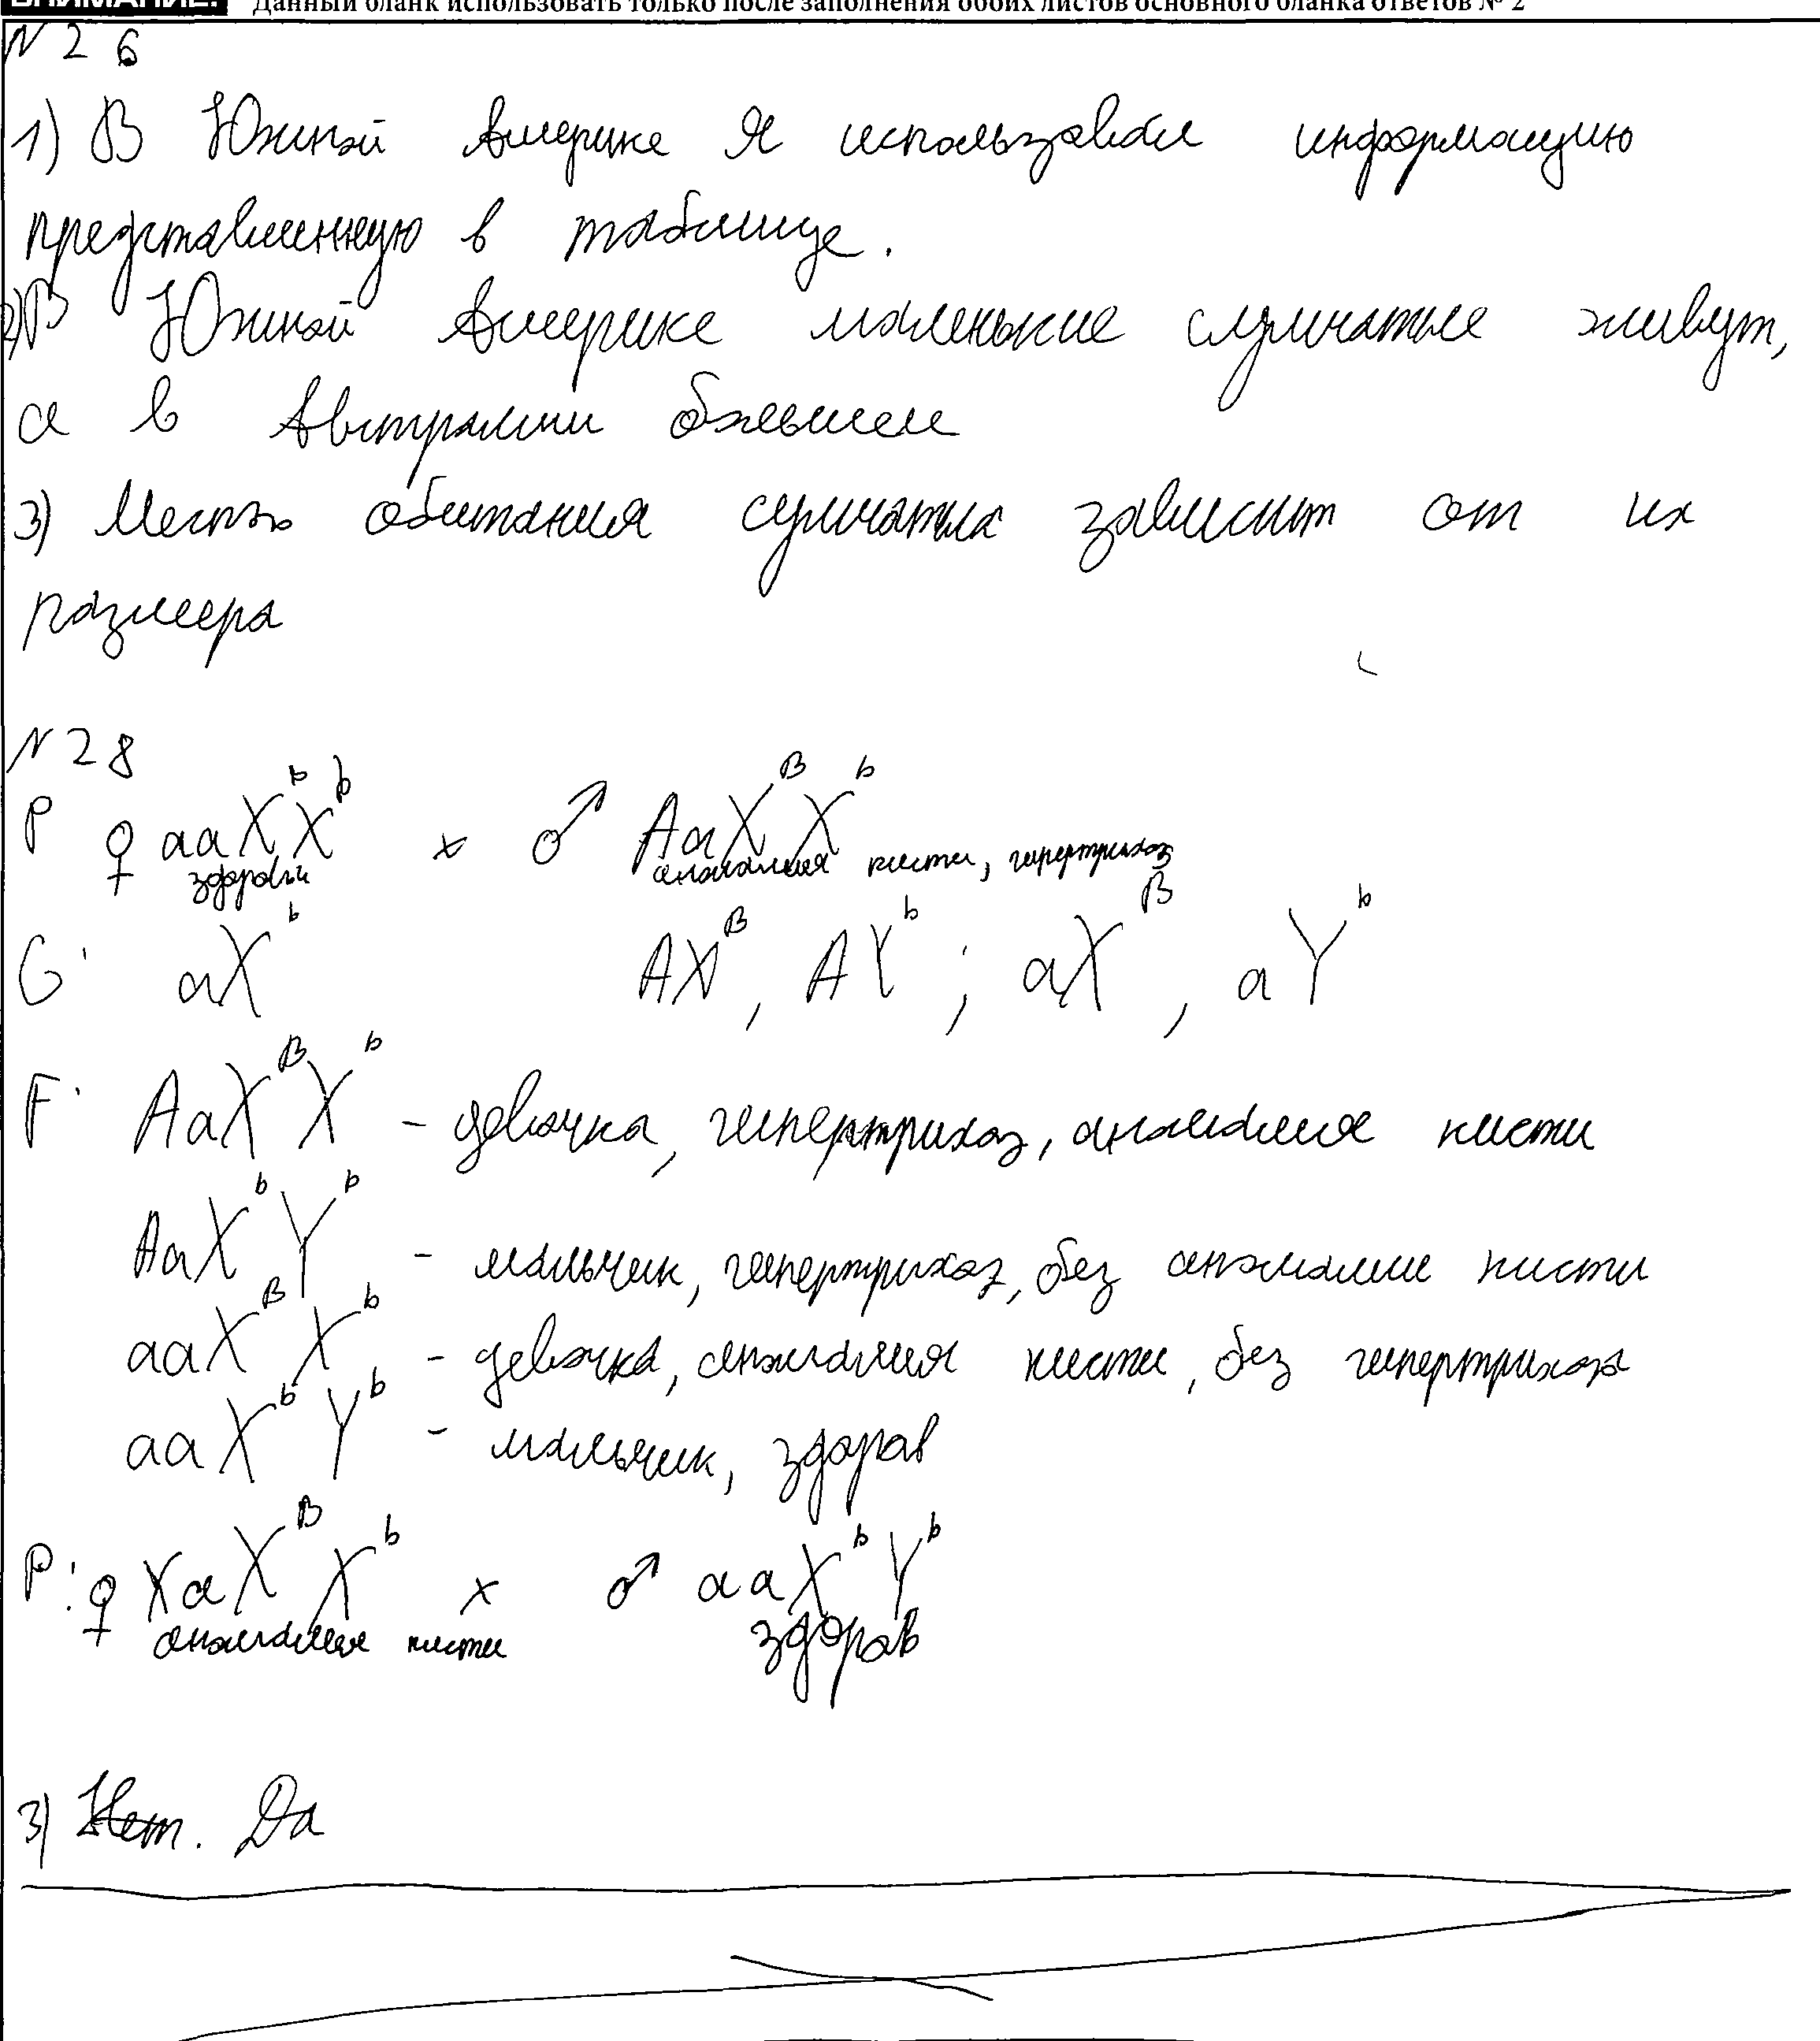 ВНИМАНИЕ! Данный бланк использовать только после заполнения обоих листов основного бланка ответов № 2
N 26
1) В Южной Америке я использовал информацию
представленную в таблице.
2) В Южной Америке маленькие сумчатые живут,
а в Австралии большие
3) Место обитания сумчатых зависит от их
размера
N 28
P ♀ aaXᵇXᵇ x ♂ AaXᴮXᵇ
здоровы аномалия кисти, гипертрихоз
G: aXᵇ AXᴮ, AYᵇ; aXᴮ, aYᵇ
F: AaXᴮXᵇ - девочка, гипертрихоз, аномалия кисти
AaXᵇYᵇ - мальчик, гипертрихоз, без аномалии кисти
aaXᴮXᵇ - девочка, аномалия кисти, без гипертрихоза
aaXᵇYᵇ - мальчик, здоров
P: ♀ XaXᴮXᵇ x ♂ aaXᵇYᵇ
аномалия кисти здоров
3) Нет. Да